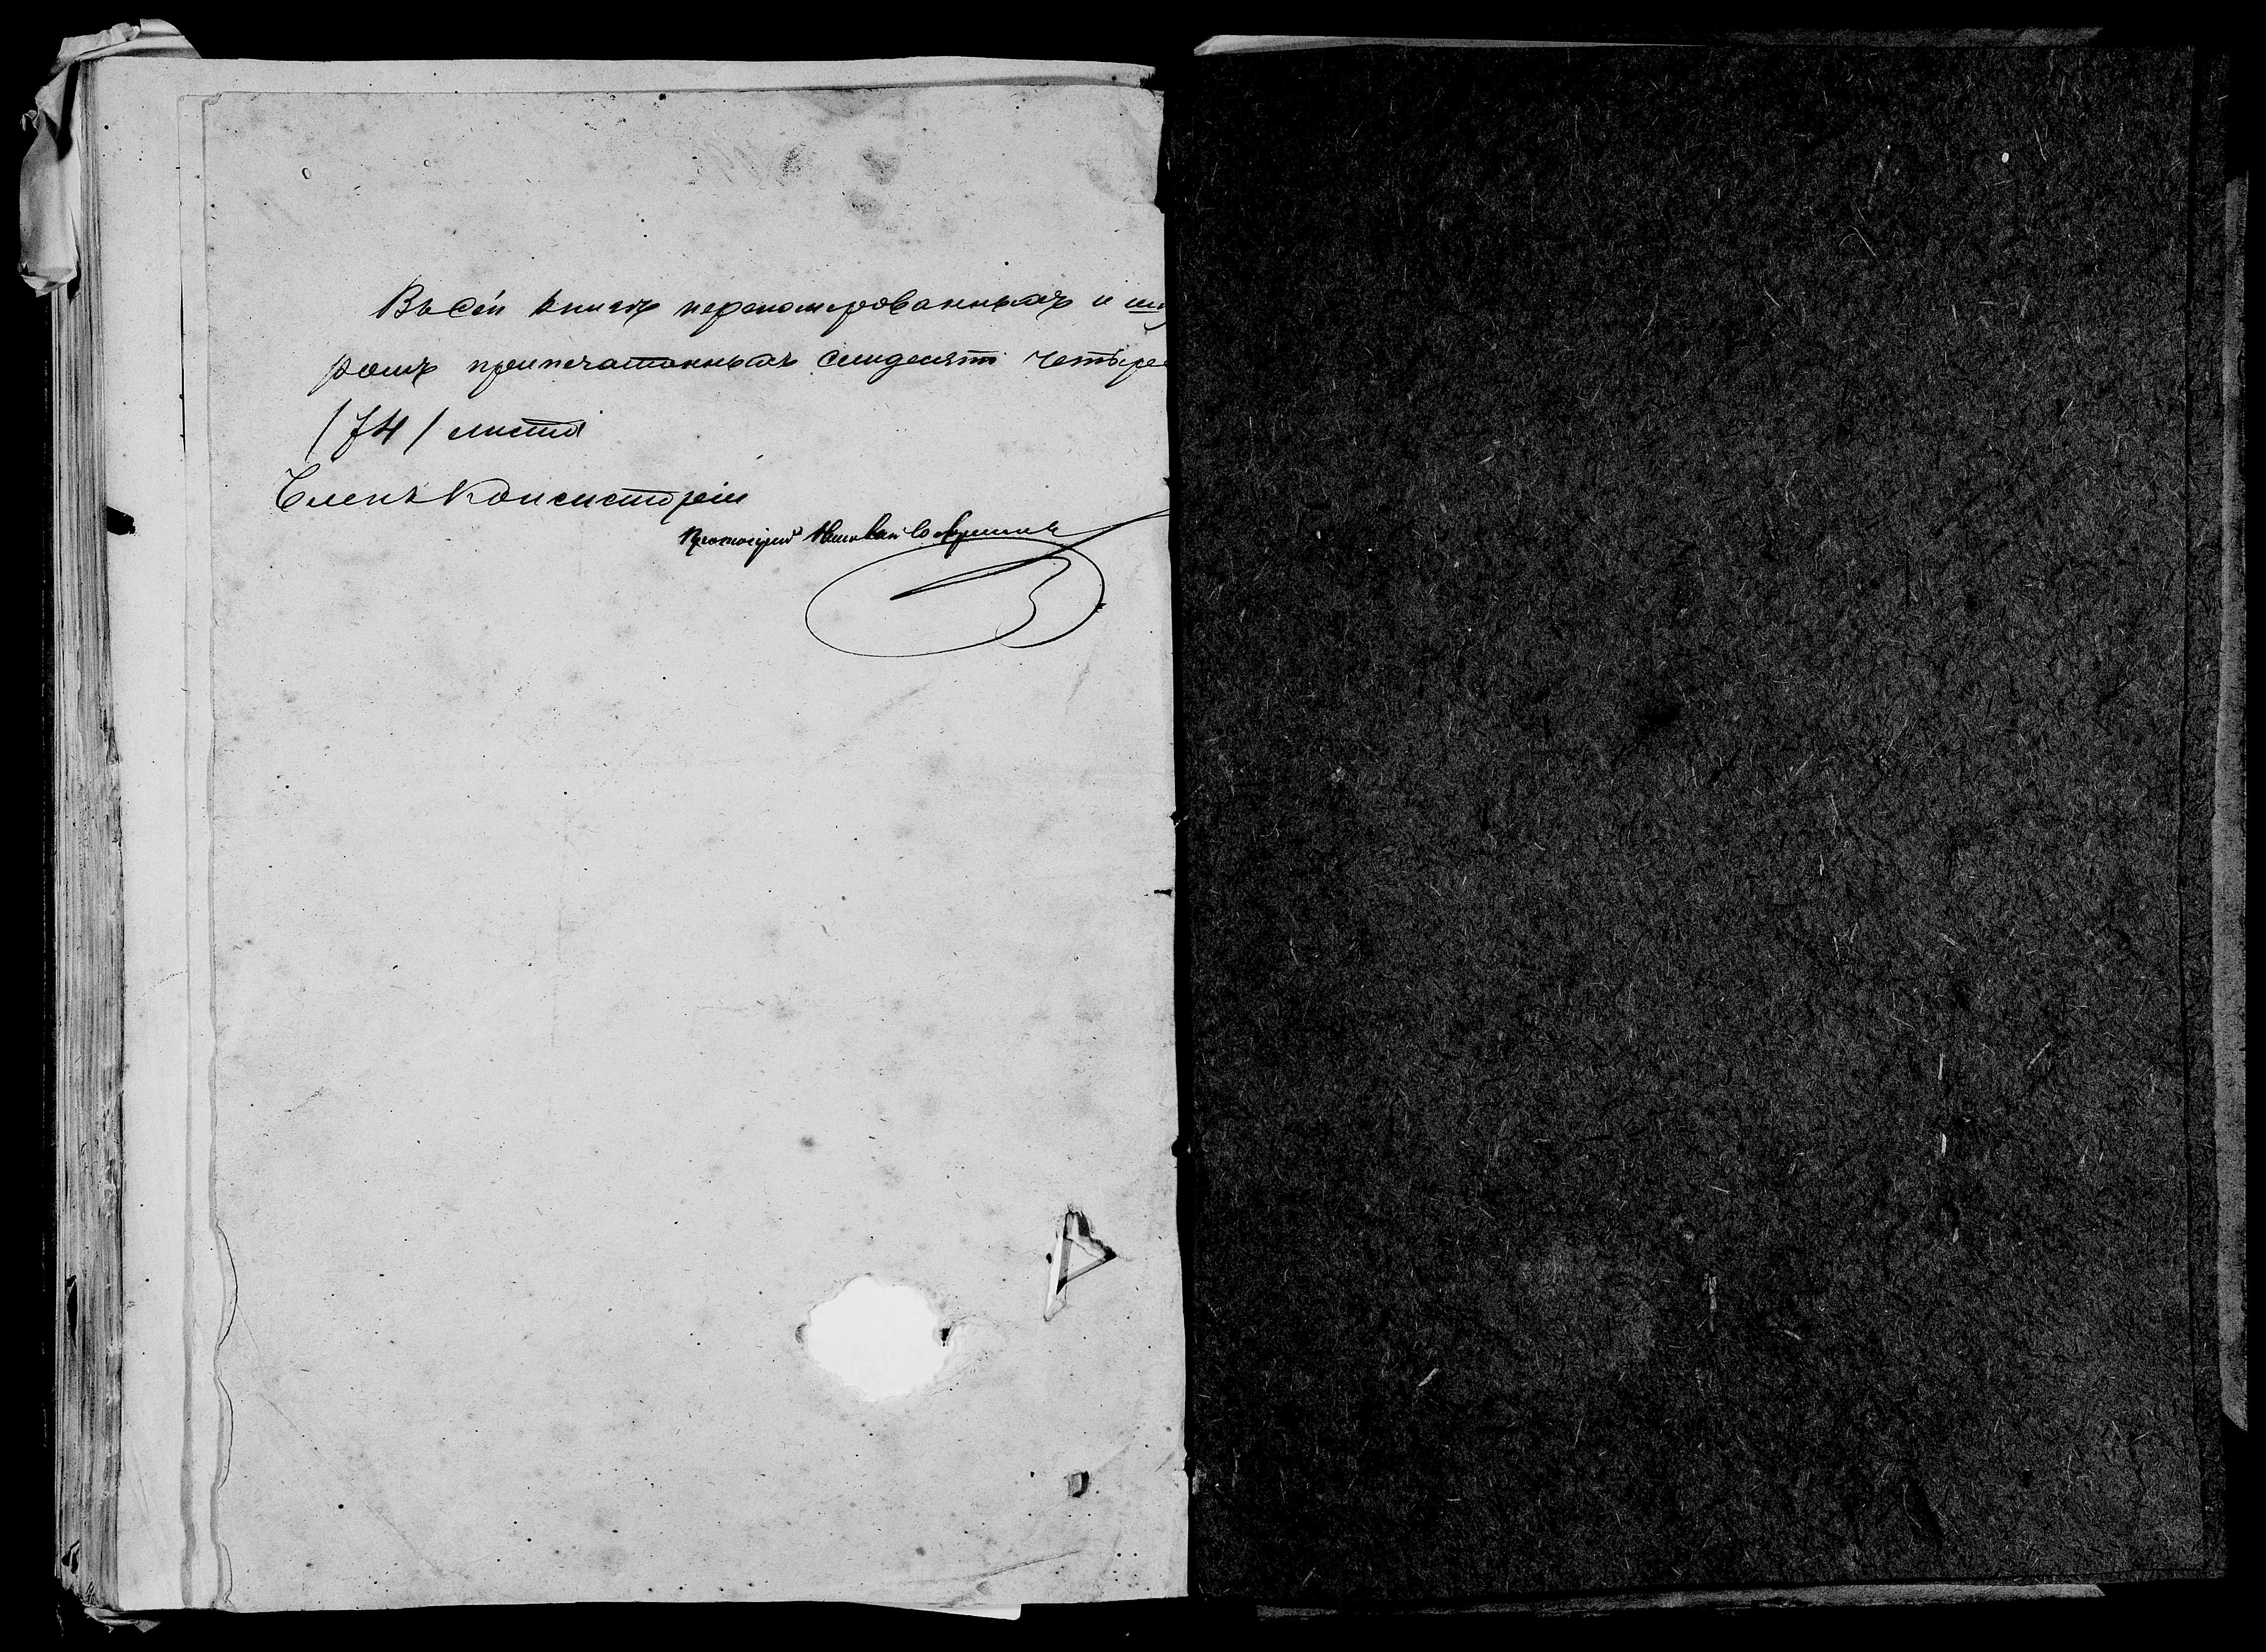 Въ сей книгѣ переномерованныхъ и шну
ромъ припечатанныхъ семдесятъ четыре
/74/ листа
Членъ Консисторіи
Протоіерей Николай